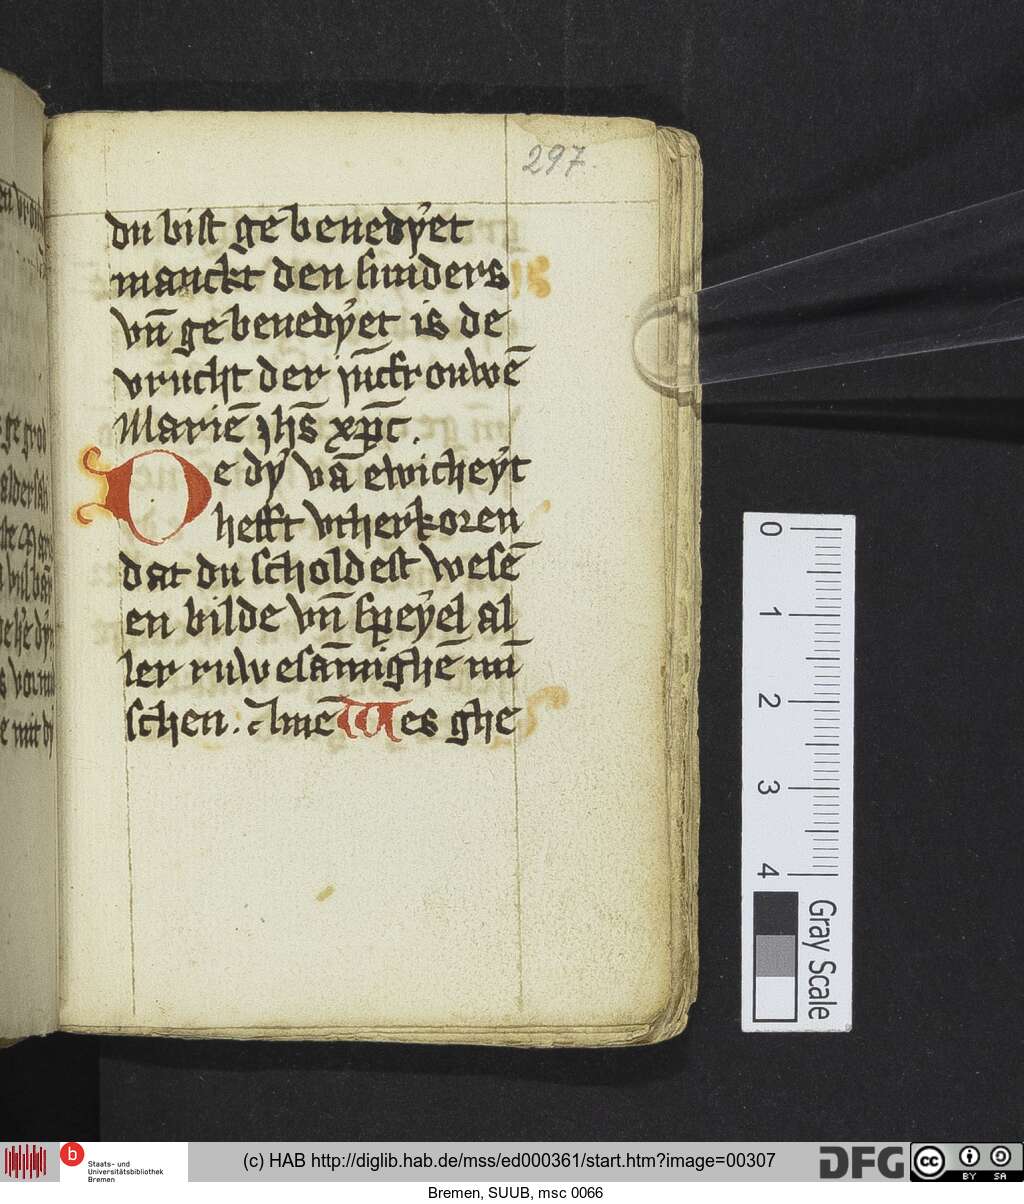 297.
du bist ge benedyet
manckt den sunders
vn̄ ge benedyet is de
vrucht der jūcfrouwē
Mariē jhs̄ xpc̄.
De dy vā ewicheyt
hefft vtherkoren
dat du scholdest wesē
en bilde vn̄ speyel al
ler ruwesāmighē mī
schen. Amē Wes ghe
0
1
2
3
4
Gray Scale
b
Staats- und
Universitätsbibliothek
Bremen
(c) HAB http://diglib.hab.de/mss/ed000361/start.htm?image=00307
DFG
cc
BY SA
Bremen, SUUB, msc 0066